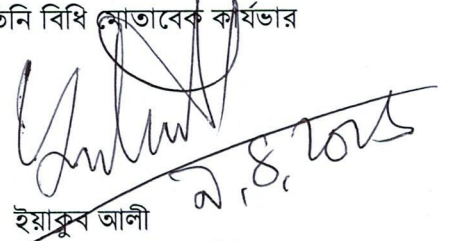 তনি বিধি মোতাবেক কার্যভার
৯.৪.২০২৫
ইয়াকুব আলী